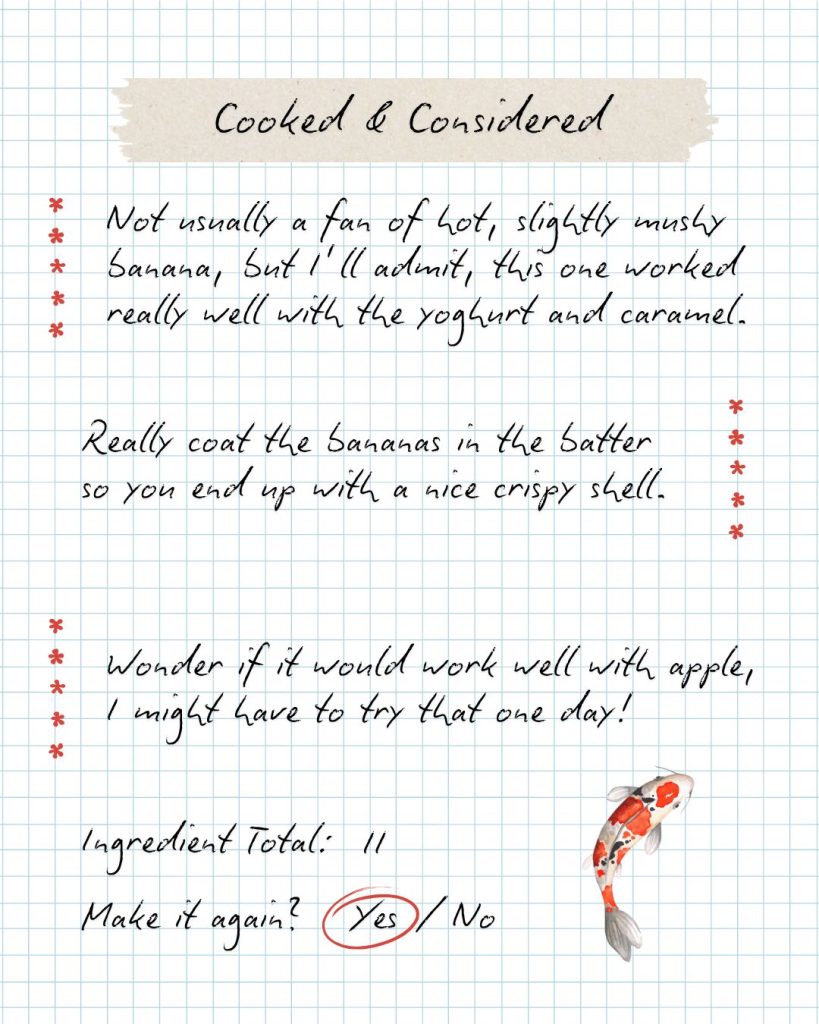 Cooked & Considered
Not usually a fan of hot, slightly mushy
banana, but I'll admit, this one worked
really well with the yoghurt and caramel.
Really coat the bananas in the batter
so you end up with a nice crispy shell.
Wonder if it would work well with apple,
I might have to try that one day!
Ingredient Total: 11
Make it again? Yes / No